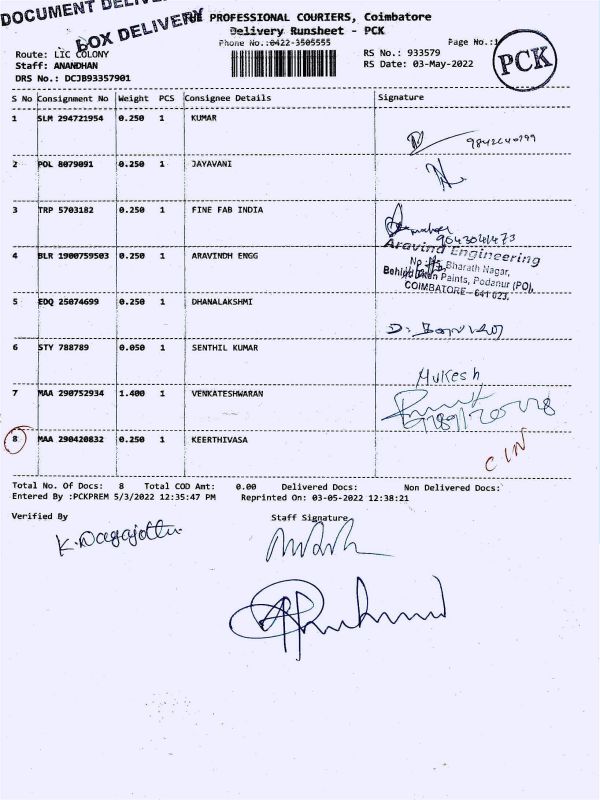 DOCUMENT DELIVERY
BOX DELIVERY
THE PROFESSIONAL COURIERS, Coimbatore
Delivery Runsheet - PCK
Phone No.:0422-3505555
Page No.:1
PCK
Route: LIC COLONY
RS No.: 933579
Staff: ANANDHAN
RS Date: 03-May-2022
DRS No.: DCJB93357901
S No Consignment No Weight PCS Consignee Details Signature
1 SLM 294721954 0.250 1 KUMAR
2 POL 8079091 0.250 1 JAYAVANI
3 TRP 5703182 0.250 1 FINE FAB INDIA
9043041473
4 BLR 1900759503 0.250 1 ARAVINDH ENGG
Aravind Engineering
Bharath Nagar,
Paints, Podanur (PO),
COIMBATORE - 641 023.
5 EDQ 25074699 0.250 1 DHANALAKSHMI
6 STY 788789 0.050 1 SENTHIL KUMAR
Mukesh
7 MAA 290752934 1.400 1 VENKATESHWARAN
8 MAA 290420832 0.250 1 KEERTHIVASA
CIN
Total No. Of Docs: 8 Total COD Amt: 0.00 Delivered Docs: Non Delivered Docs:
Entered By :PCKPREM 5/3/2022 12:35:47 PM Reprinted On: 03-05-2022 12:38:21
Verified By Staff Signature